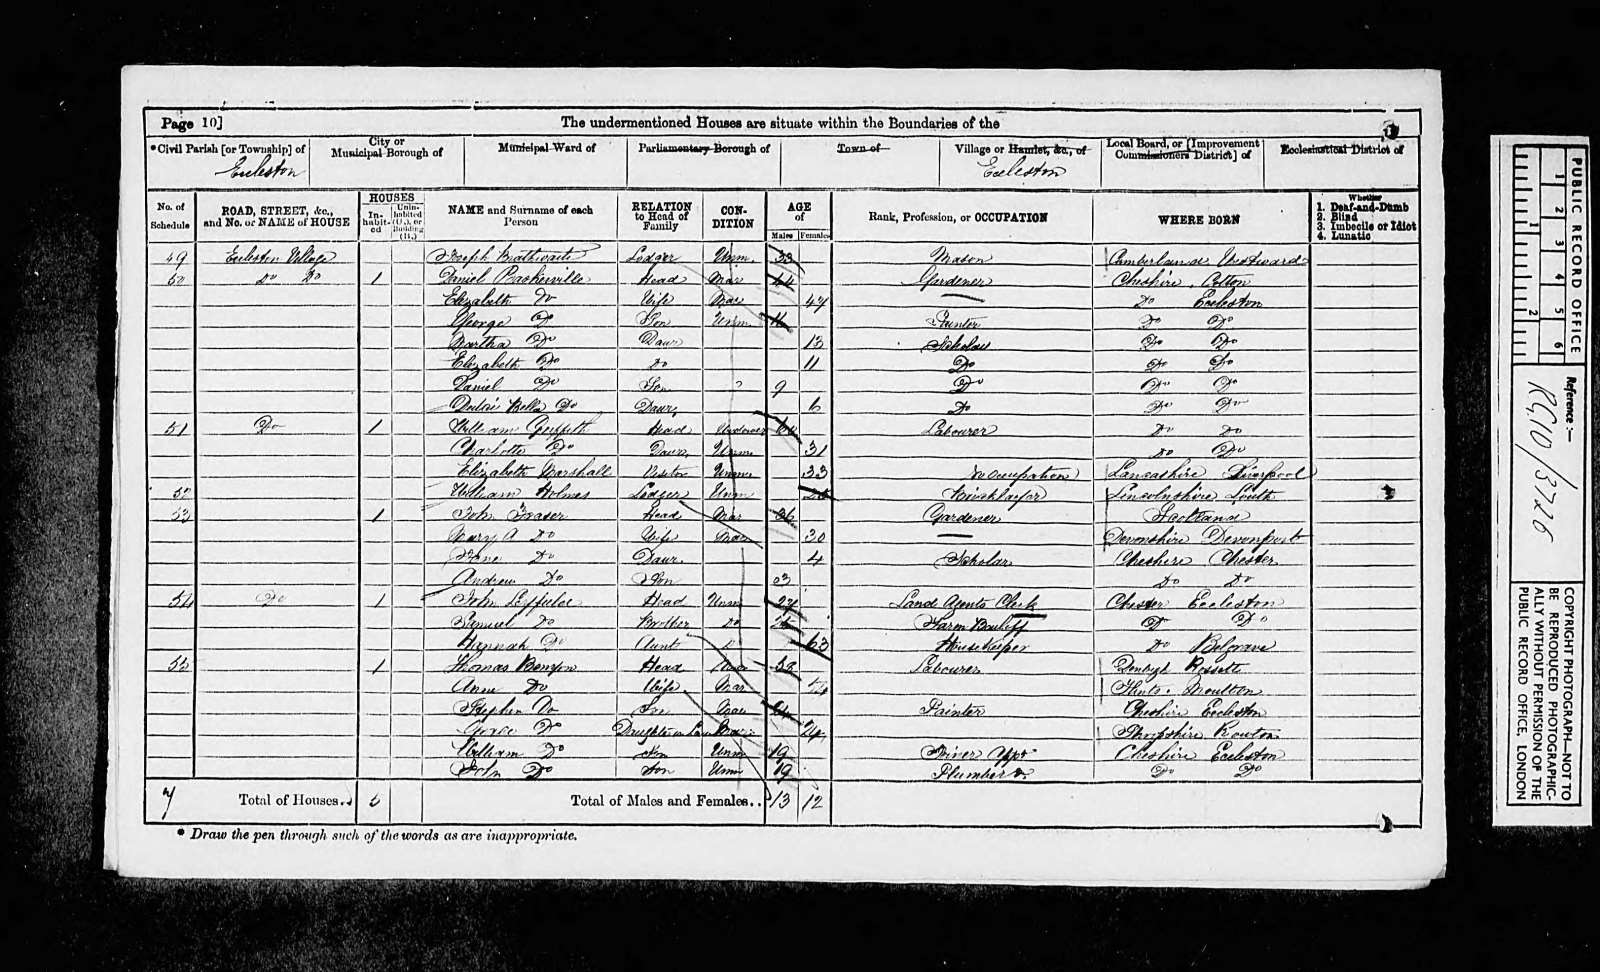 Page 10]
The undermentioned Houses are situate within the Boundaries of the
*Civil Parish [or Township] of
Eccleston
City or Municipal Borough of
Municipal Ward of
Parliamentary Borough of
Town of
Village or Hamlet, &c., of
Eccleston
Local Board, or [Improvement Commissioners District] of
Ecclesiastical District of
No. of Schedule
ROAD, STREET, &c., and No. or NAME of HOUSE
HOUSES
In-habit-ed
Unin-habited (U.), or Building (B.)
NAME and Surname of each Person
RELATION to Head of Family
CON-DITION
AGE of
Males
Females
Rank, Profession, or OCCUPATION
WHERE BORN
Whether
1. Deaf-and-Dumb
2. Blind
3. Imbecile or Idiot
4. Lunatic
49 Eccleston Village Joseph Lodger Unm 33 Mason Cumberland Westward
50 Do Do 1 Daniel Baskerville Head Mar 44 Gardener Cheshire
Elizabeth Do Wife Mar 47 Do Eccleston
George Do Son Unm Do Do
Martha Do Daur 13 Scholar Do Do
Elizabeth Do Do 11 Do Do Do
Daniel Do Son 9 Do Do Do
Bella Do Daur 6 Do Do Do
51 Do 1 William Griffith Head Widower Labourer Do Do
Charlotte Do Daur Unm 31 Do Do
Elizabeth Marshall Visitor Unm 33 No occupation Lancashire Liverpool
52 William Holmes Lodger Unm Bricklayer Lincolnshire Louth
53 1 John Fraser Head Mar 36 Gardener Scotland
Mary A Do Wife Mar 30 Devonshire Devonport
Jane Do Daur 4 Scholar Cheshire Chester
Andrew Do Son 3 Do Do
54 Do 1 John Head Unm 27 Land Agents Clerk Chester Eccleston
Samuel Do Brother Do 25 Farm Bailiff D Do
Hannah Do Aunt 63 Housekeeper Do Belgrave
55 1 Thomas Benyon Head Mar 58 Labourer Denbigh Rossett
Anne Do Wife Mar 54 Moulton
Stephen Do Son Mar 24 Painter Cheshire Eccleston
Grace Do Daughter in Law Mar 24 Shropshire
William Do Son Unm 19 Cheshire Eccleston
John Do Son Unm 19 Plumber Do Do
7 Total of Houses.. 5 Total of Males and Females.. 13 12
* Draw the pen through such of the words as are inappropriate.
PUBLIC RECORD OFFICE
1 2 3 4 5 6
1 2
Reference:-
RG10/3726
COPYRIGHT PHOTOGRAPH—NOT TO
BE REPRODUCED PHOTOGRAPHIC-
ALLY WITHOUT PERMISSION OF THE
PUBLIC RECORD OFFICE, LONDON